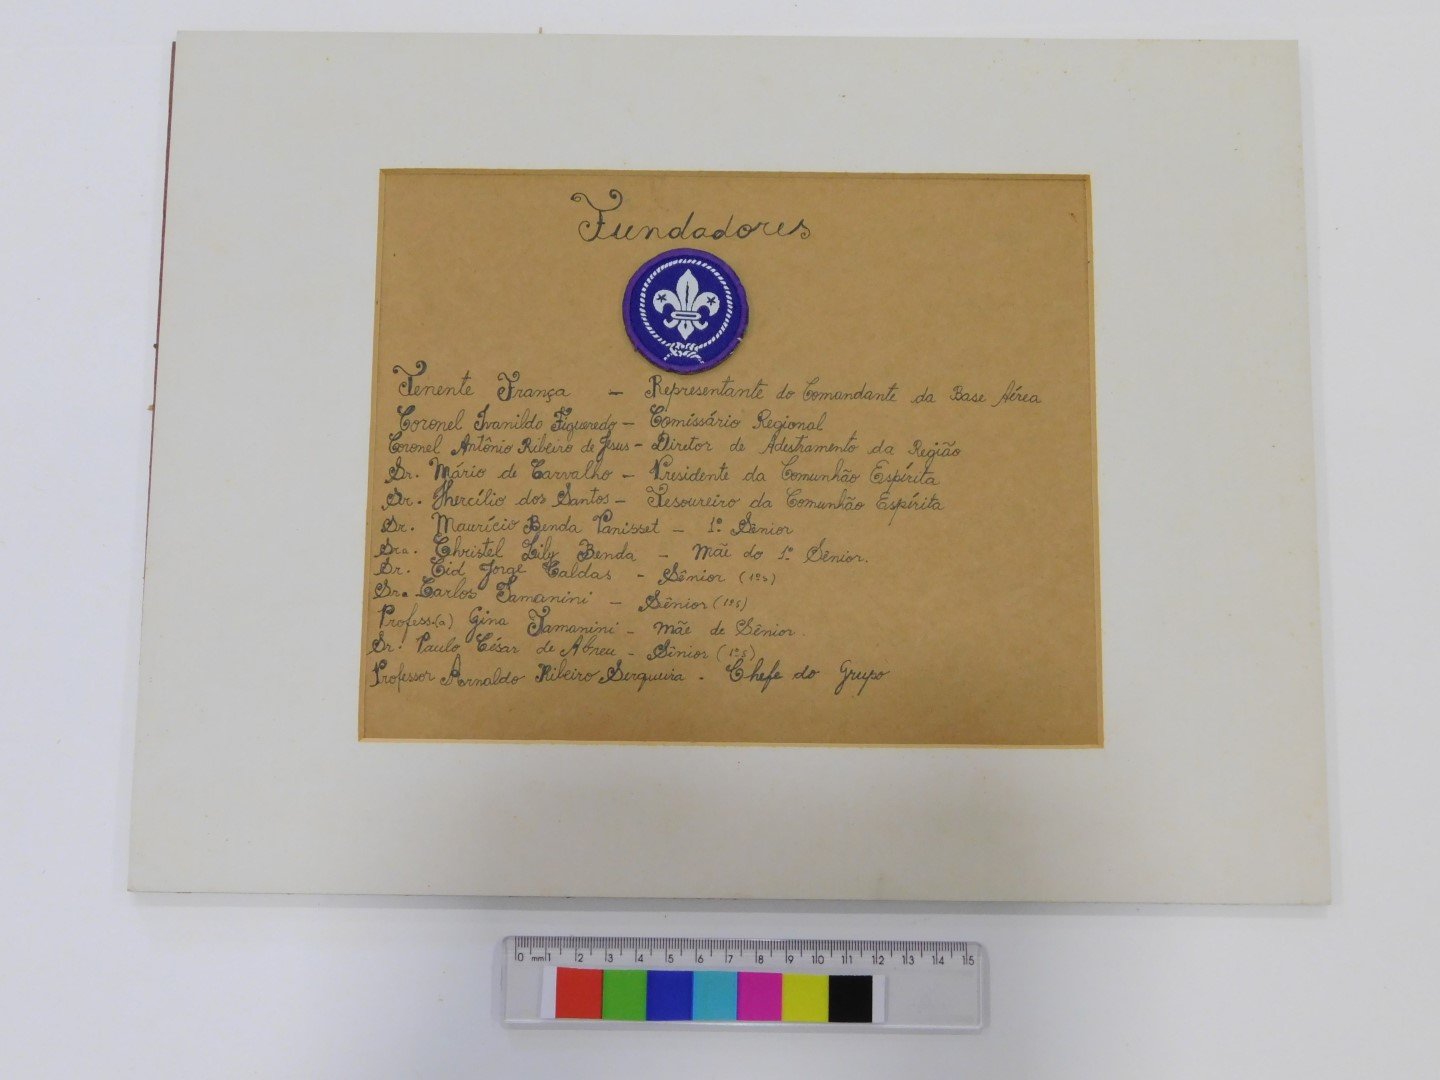 Fundadores
Tenente França - Representante do Comandante da Base Aérea
Coronel Ivanildo Figueredo - Comissário Regional
Coronel Antônio Ribeiro de Jesus - Diretor de Adestramento da Região
Sr. Mário de Carvalho - Presidente da Comunhão Espírita
Sr. Hercílio dos Santos - Tesoureiro da Comunhão Espírita
Sr. Maurício Benda Panisset - 1º Sênior
Sra. Christel Lily Benda - Mãe do 1º Sênior.
Sr. Cid Jorge Caldas - Sênior (1ºs)
Sr. Carlos Tamanini - Sênior (1ºs)
Profess.(a) Gina Tamanini - Mãe de Sênior.
Sr. Paulo César de Abreu - Sênior (1ºs)
Professor Arnaldo Ribeiro Serqueira - Chefe do Grupo
0 mm 1 2 3 4 5 6 7 8 9 10 11 12 13 14 15